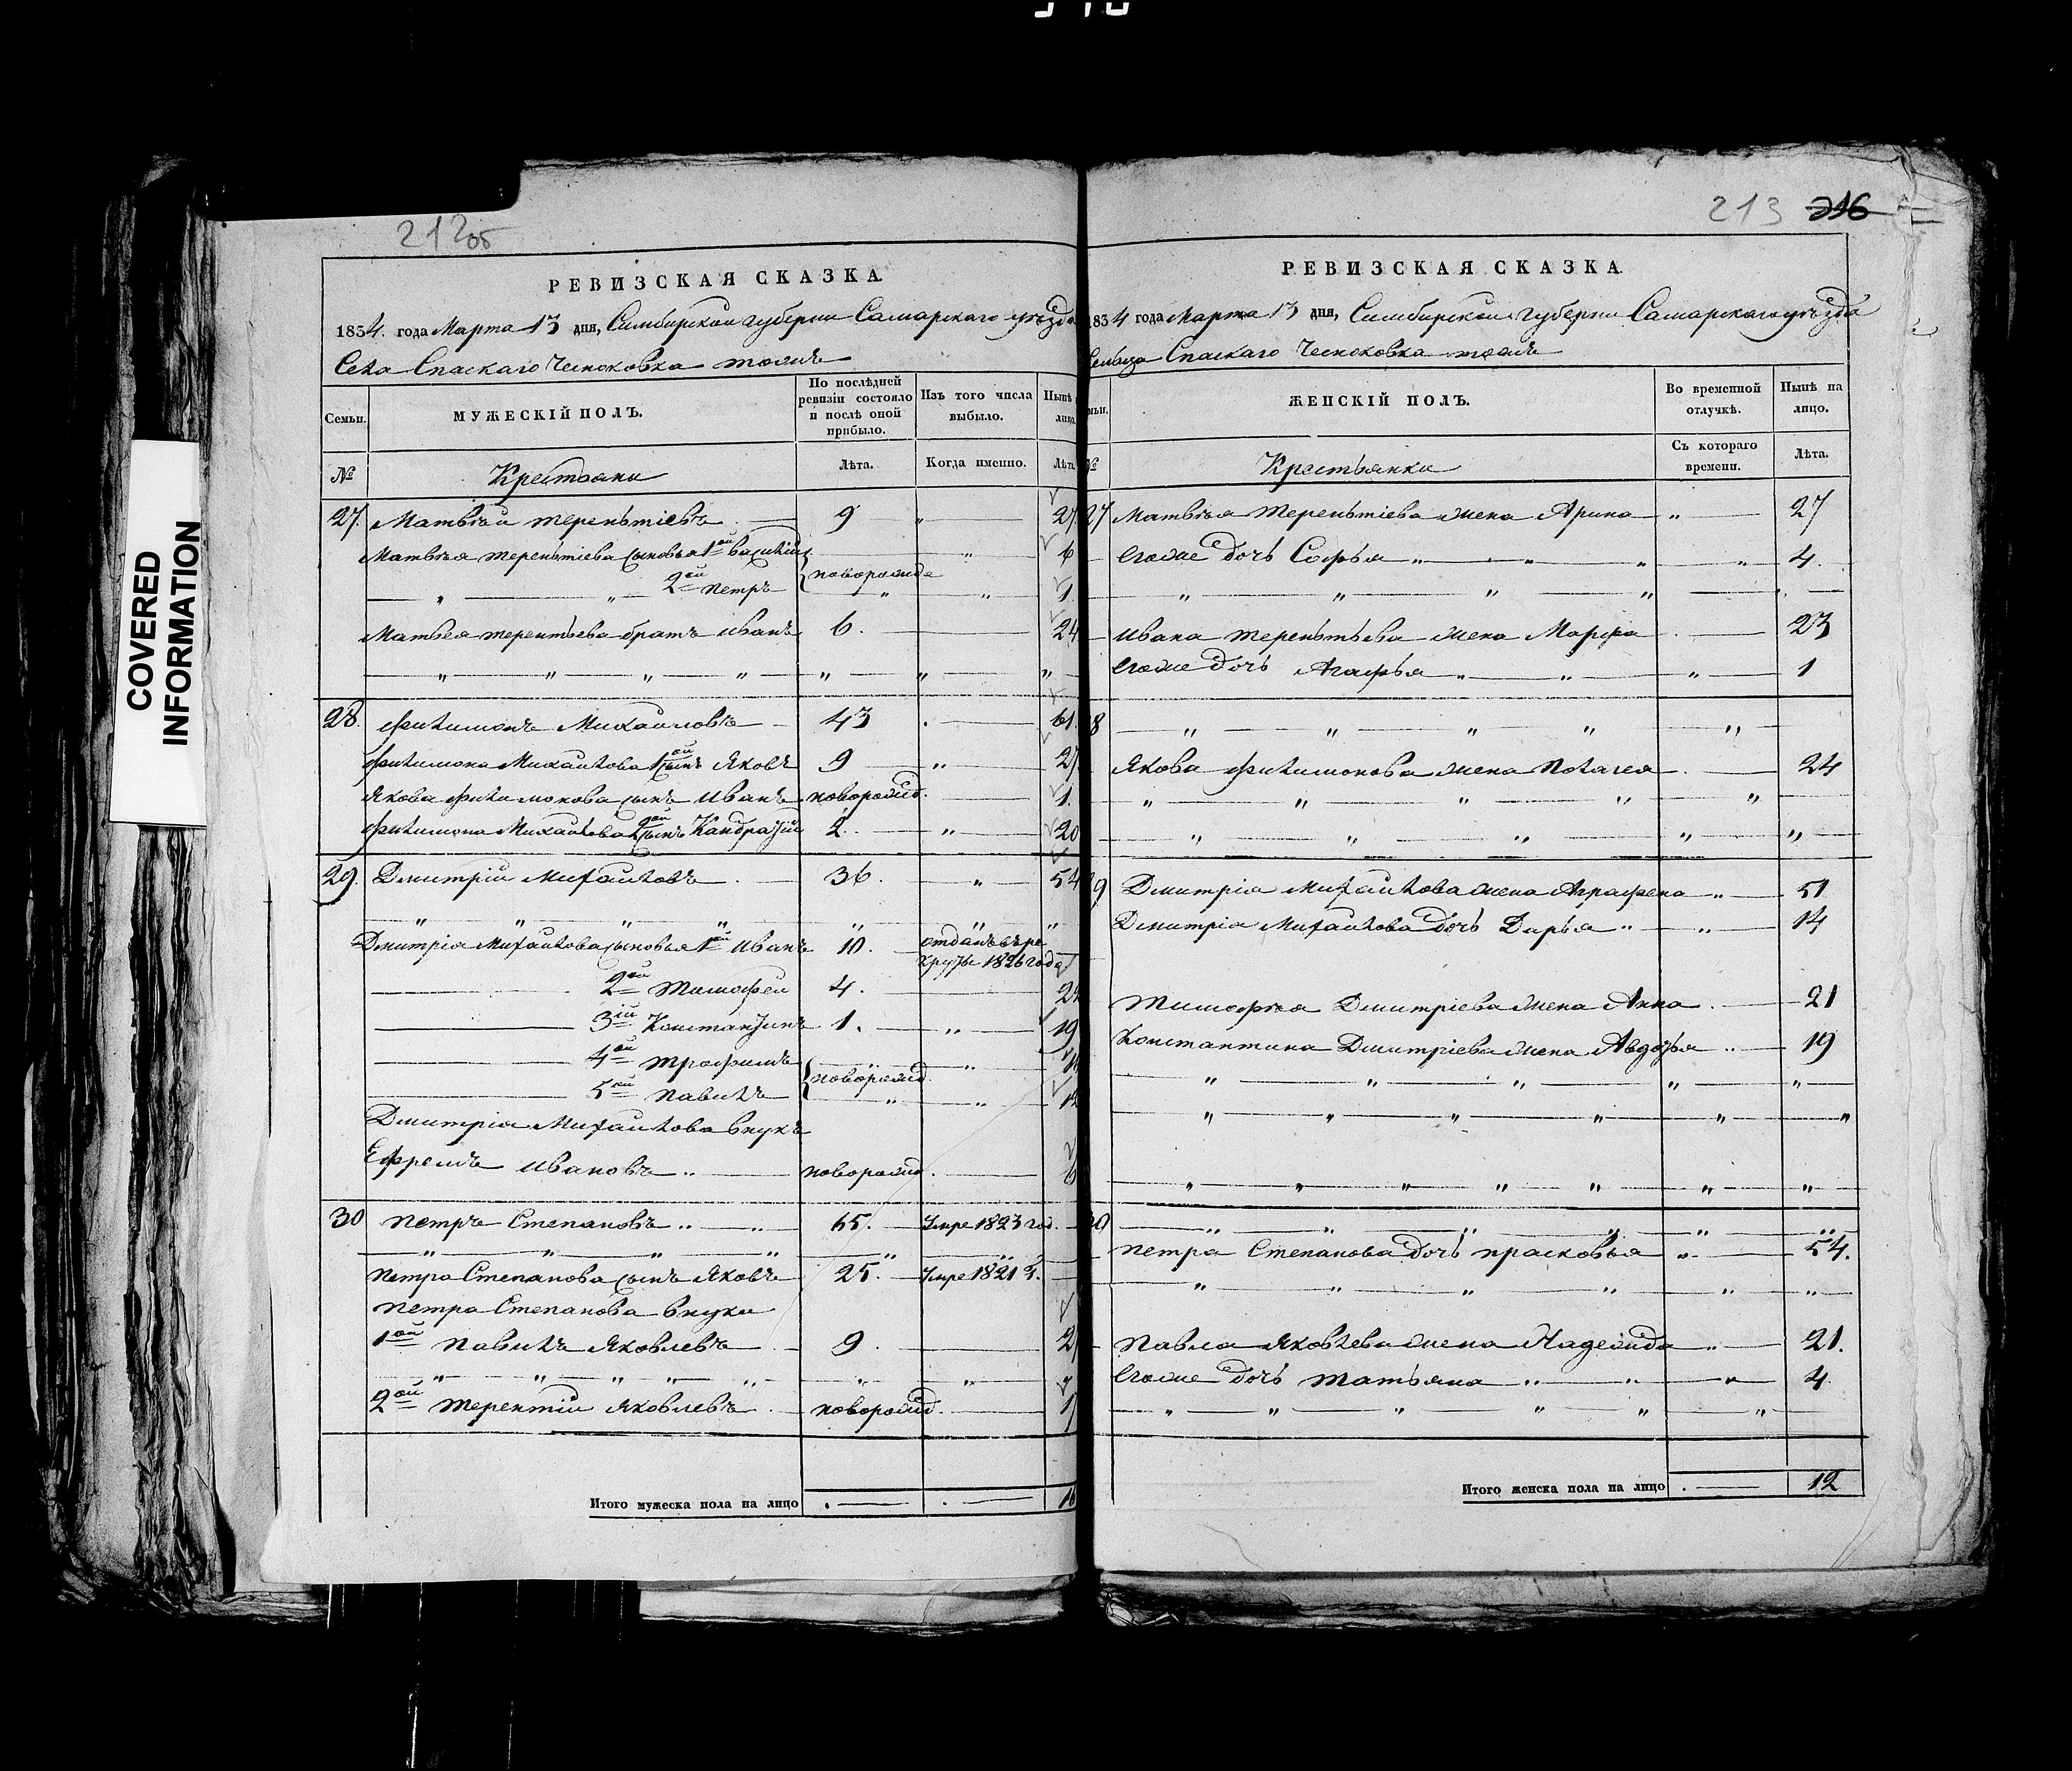 COVERED
INFORMATION
212 об
РЕВИЗСКАЯ СКАЗКА.
1834. года Марта 13 дня, Симбирской губернии Самарского уѣзда
Села Спаскаго Чесноковка тожъ
Семьи. МУЖЕСКІЙ ПОЛЪ. По послѣдней ревизіи состояло и послѣ оной прибыло. Изъ того числа выбыло. Нынѣ лицо.
№ Крестьяни Лѣта. Когда именно. Лѣта
27. Матвѣй Терентіевъ 9 „ 27.
Матвѣя Терентіева сыновья 1ой Василій „ 6
2ой Петръ новорожд „ 1
Матвея Терентьева братъ Иванъ 6. 24
„ „ „ „ „ „ „
28. Филимонъ Михайловъ 43 61.
Филимона Михайлова 1ой сынъ Яковъ 9 „ 27
Якова Филимонова сынъ Иванъ новорожд. 1.
Филимона Михайлова 2ой сынъ Кандратій 2. „ 20
29. Дмитрій Михайловъ 36. „ 54
„ „ „ „ „ „ „
Дмитрія Михайлова сыновья 1ой Иванъ 10. отданъ въ ре
круты 1826 года
2ой Тимофей 4. 22
3ій Константинъ 1. „ 19
4ой Трофимъ „
5ой Павилъ новорожд. „ 12
Дмитрія Михайлова внукъ
Ефремъ Ивановъ „ новорожд. 6
30 Петръ Степановъ „ „ 65. Умре 1823 год.
„ „ „ „ „ „
Петра Степанова сынъ Яковъ 25. Умре 1821 г.
Петра Степанова внуки
1ой Павилъ Яковлевъ 9. 27
„ „ „ „ „ „ „ „
2ой Терентій Яковлевъ новорожд.
Итого мужеска пола на лицо 16
213 216
РЕВИЗСКАЯ СКАЗКА.
1834 года Марта 13 дня, Симбирской Губерни Самарскаго уѣзда
Спаскаго Чесноковка тожъ
ЖЕНСКІЙ ПОЛЪ. Во временной отлучкѣ. Нынѣ на лицо.
№ Крестьянки Съ котораго времени. Лѣта.
27 Матвѣя Терентіева жена Арина „ 27
Егоже дочь Софья „ „ „ „ 4.
„ „ „ „
Ивана Терентьева жена Марфа 23
Егоже дочь Агафья „ „ „ 1
28 „ „ „ „ „
Якова Филимонова жена Полагея 24
„ „ „ „ „
„ „ „ „ „
29 Дмитрія Михайлова жена Аграфена „ 51
Дмитрія Михайлова дочь Дарья „ „ 14
Тимофѣя Дмитріева жена Анна 21
Константина Дмитріева жена Авдотья „ 19
„ „ „ „ „
„ „ „ „ „ „
„ „ „ „ „ „ „
30 „ „ „ „ „ „
Петра Степанова дочь Прасковья „ 54.
„ „ „ „ „ „
Павла Яковлева жена Надежда „ 21.
Егоже дочь Татьяна „ „ „ 4.
„ „ „ „ „ „
Итого женска пола на лицо 12